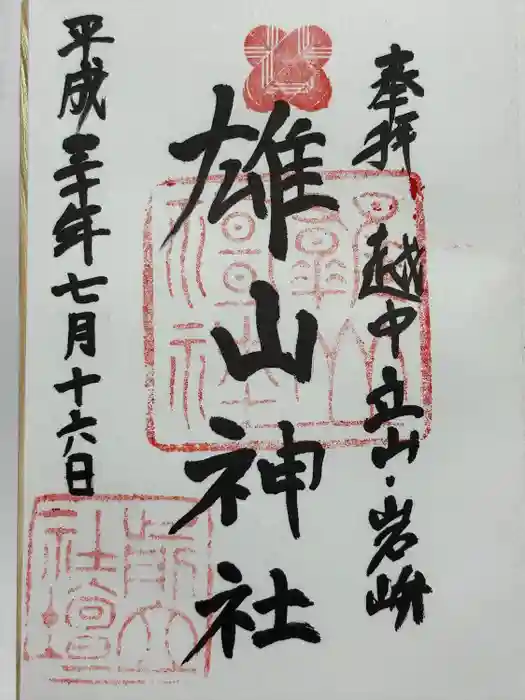 奉拝 越中立山・岩峅
雄山神社
平成三十年七月十六日